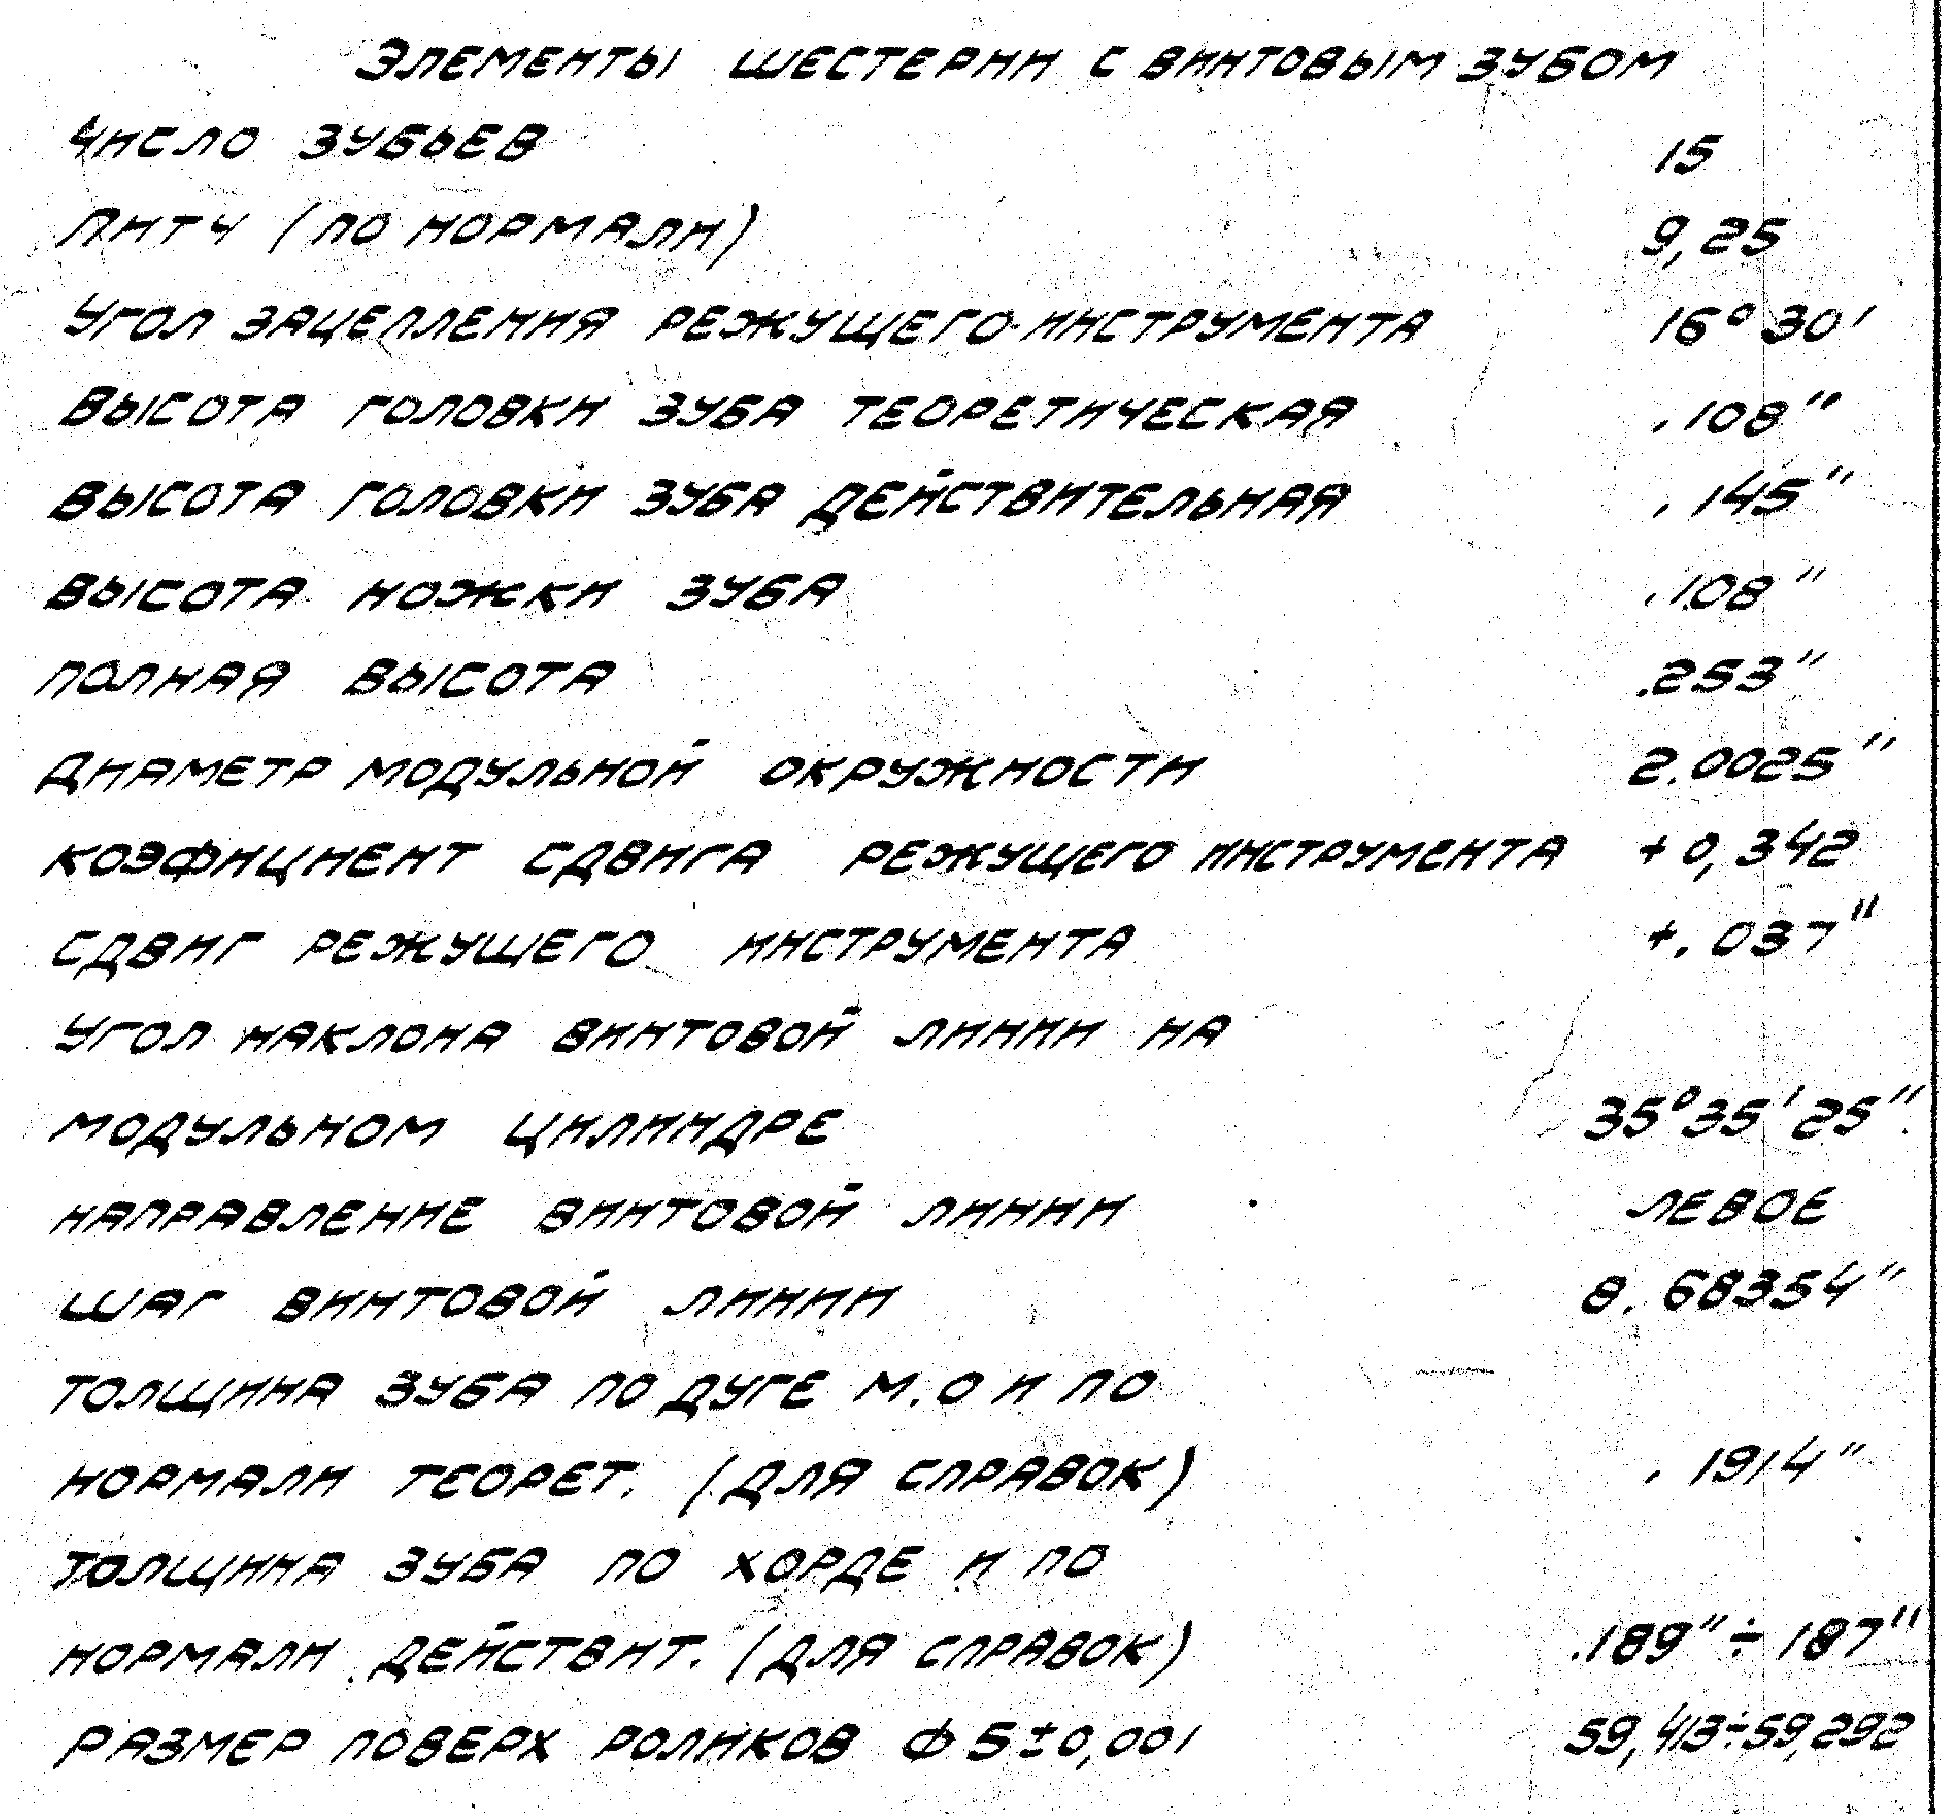 Элементы шестерни с винтовым зубом
Число зубьев 15
Питч (по нормали) 9,25
Угол зацепления режущего инструмента 16°30'
Высота головки зуба теоретическая .108"
Высота головки зуба действительная .145"
Высота ножки зуба .108"
Полная высота .253"
Диаметр модульной окружности 2.0025"
Коэфициент сдвига режущего инструмента +0,342
Сдвиг режущего инструмента +.037"
Угол наклона винтовой линии на
модульном цилиндре 35°35'25"
Направление винтовой линии левое
Шаг винтовой линии 8.68354"
Толщина зуба по дуге м.о и по
нормали теорет. (для справок) .1914"
Толщина зуба по хорде и по
нормали действит. (для справок) .189"÷187"
Размер поверх роликов Ф5±0,001 59,413÷59,292